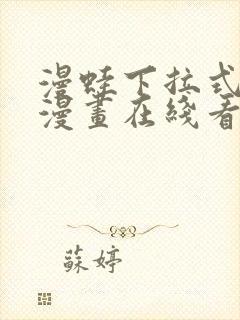 漫蛙下拉式
漫畫在綫看
蘇婷